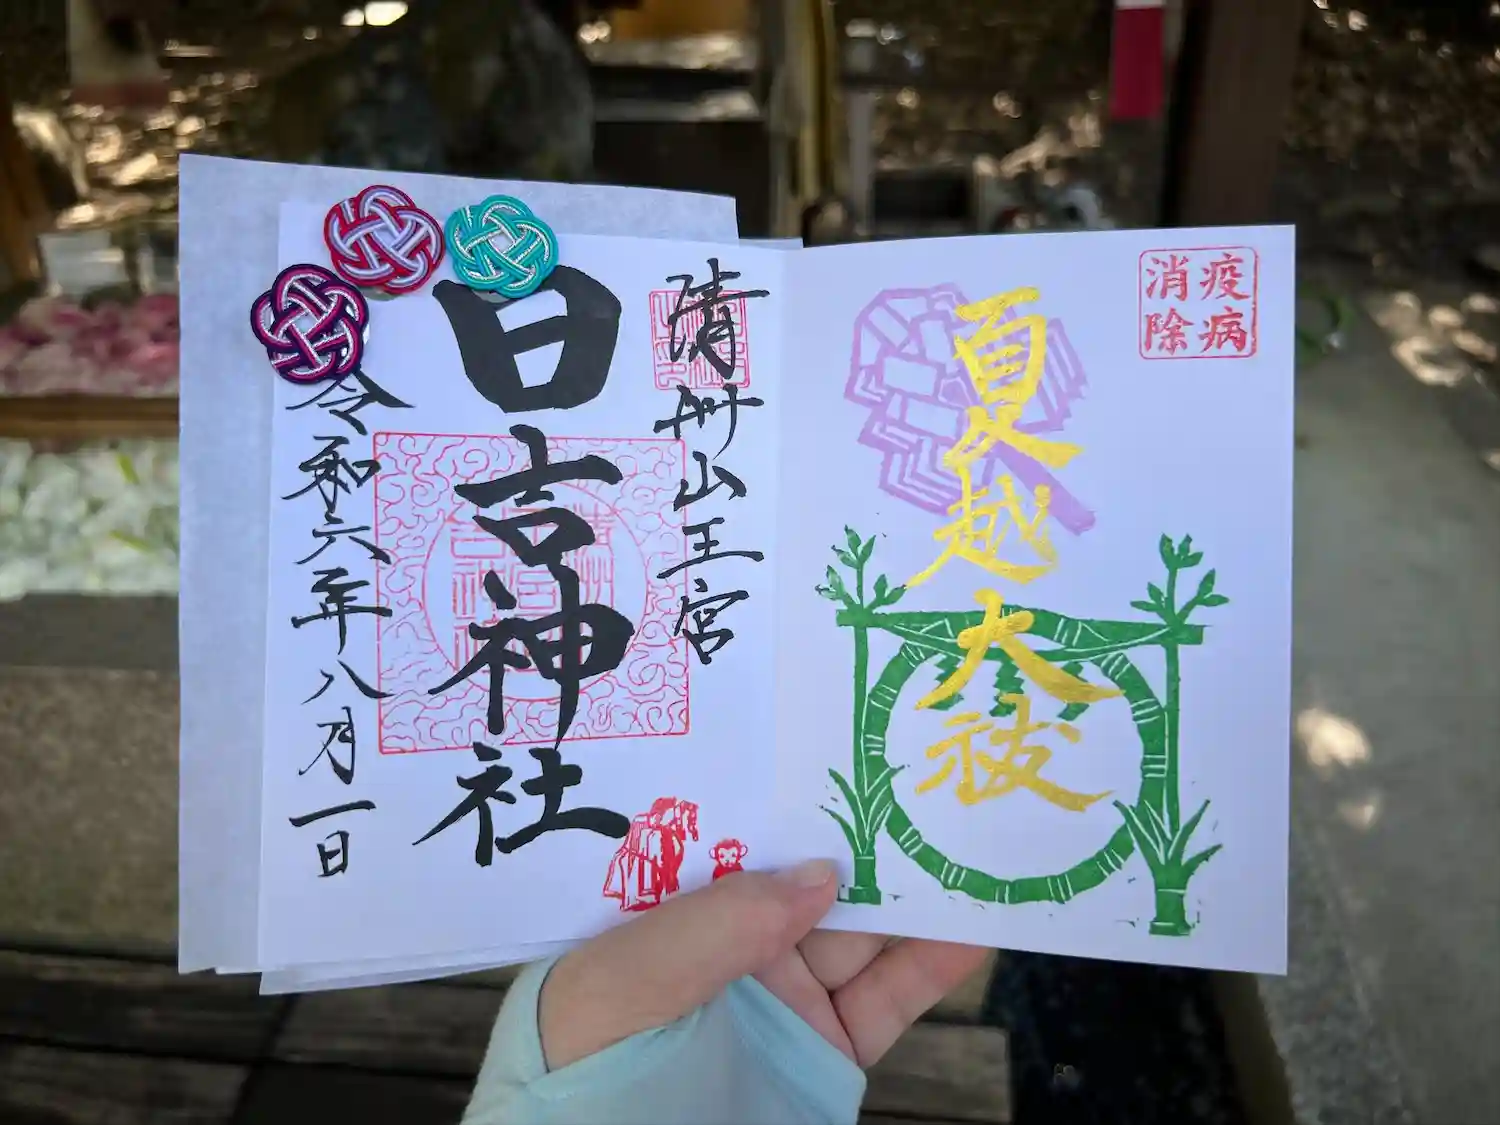 疫病
消除
夏越大祓
清州山王宮
日吉神社
令和六年八月一日